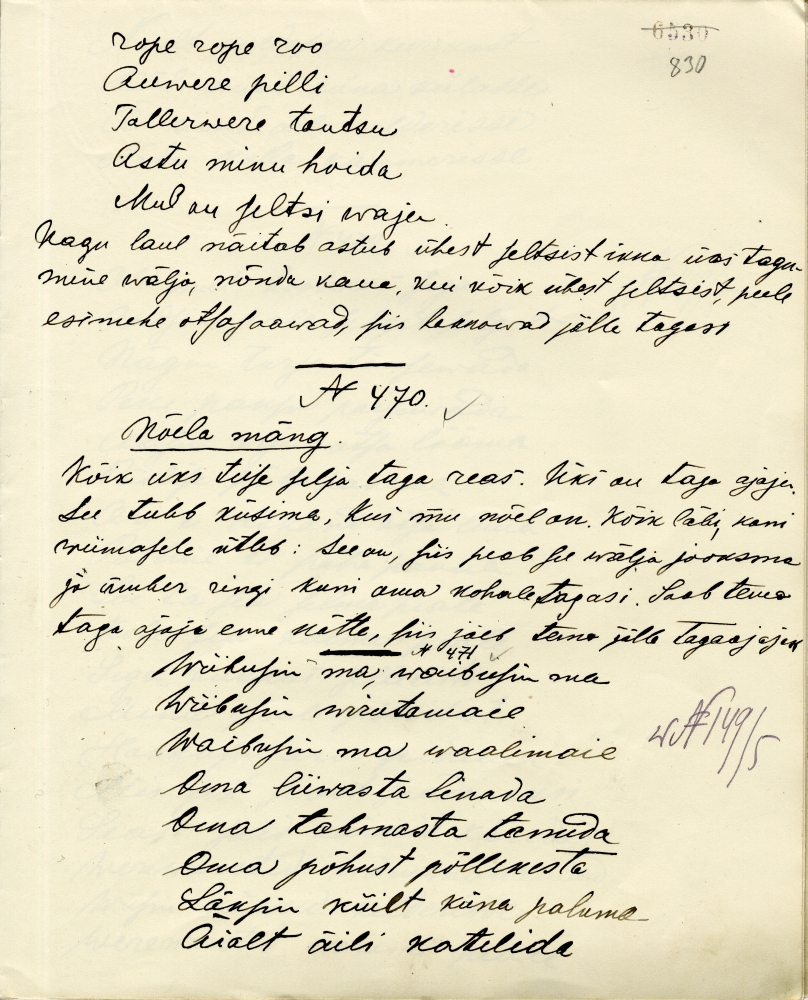 6530
830
rope rope roo
Auwere pilli
Tallerwere tantsu
Astu minu hoida
Mul on seltsi waja
Nagu laul näitab astub ühest seltsist ikka üks tagu-
mine wälja, nõnda kaua, kui kõik ühest seltsist, peale
esimehe otsa saawad, siis hakkawad jälle tagasi
№ 470.
Nõela mäng.
Kõik üks teise selja taga reas. Üks on taga ajaja.
See tuleb küsima, Kus mu nõel on. Kõik läbi, kani
wiimasele ütleb: See on, siis peab see wälja jooksma
ja ümber ringi kuni oma kohale tagasi. Saab tema
taga ajaja enne kätte, siis jäeb tema jälle tagaajajaks
№ 471
Wiibusin ma, waibusin ma
Wiibusin wirutamaie
Waibusin ma waalimaie
w № 149/5
Oma liiwasta linada
Oma tahmasta tanuda
Oma põhust põllekesta
Läksin küilt küna paluma
Äialt äili katelida